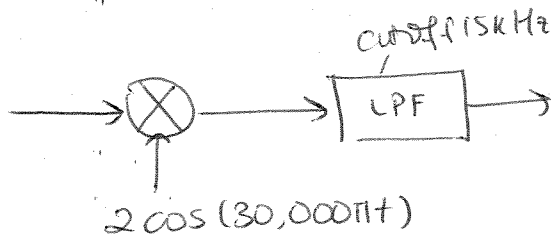 cutoff 15kHz
LPF
2 cos (30,000πt)